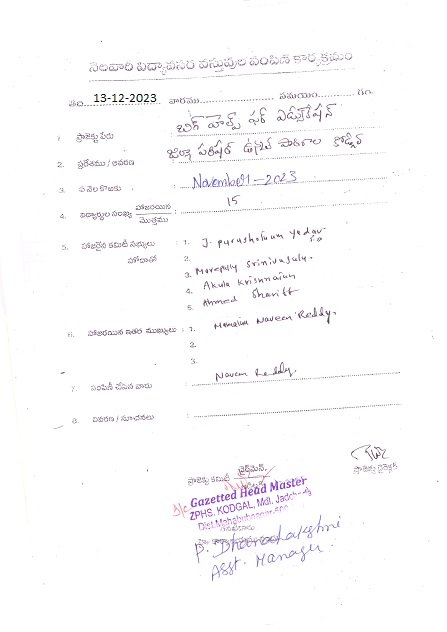 నెలవారి విద్యావసర వస్తువుల పంపిణి కార్యక్రమం
తేది 13-12-2023 వారము సమయం గం.
1. ప్రాజెక్టు పేరు బిగ్ హెల్ప్ ఫర్ ఎడ్యుకేషన్
2. ప్రదేశము / ఆవరణ జిల్లా పరిషత్ ఉన్నత పాఠశాల కోడ్గల్
3. ఏ నెల కొఱకు November - 2023
4. విద్యార్థుల సంఖ్య హాజరయిన 15
మొత్తము
5. హాజరైన కమిటీ సభ్యులు 1. J. purushotham Yedav
హోదాతో 2.
3. Morepally Srinivasulu.
4. Akula krishnaiah
5. Ahmed Shariff
6. హాజరయిన ఇతర ముఖ్యులు : 1. Naveen Reddy.
2.
3.
7. పంపిణీ చేసిన వారు Naveen Reddy.
8. వివరణ / సూచనలు :
ప్రాజెక్టు కమిటీ ఛైర్మెన్. ప్రాజెక్టు డైరెక్టర్
Gazetted Head Master
ZPHS. KODGAL, Mdl. Jadcherla
Dist. Mahabubnagar-509
P. Dhanalakshmi
Asst. Manager